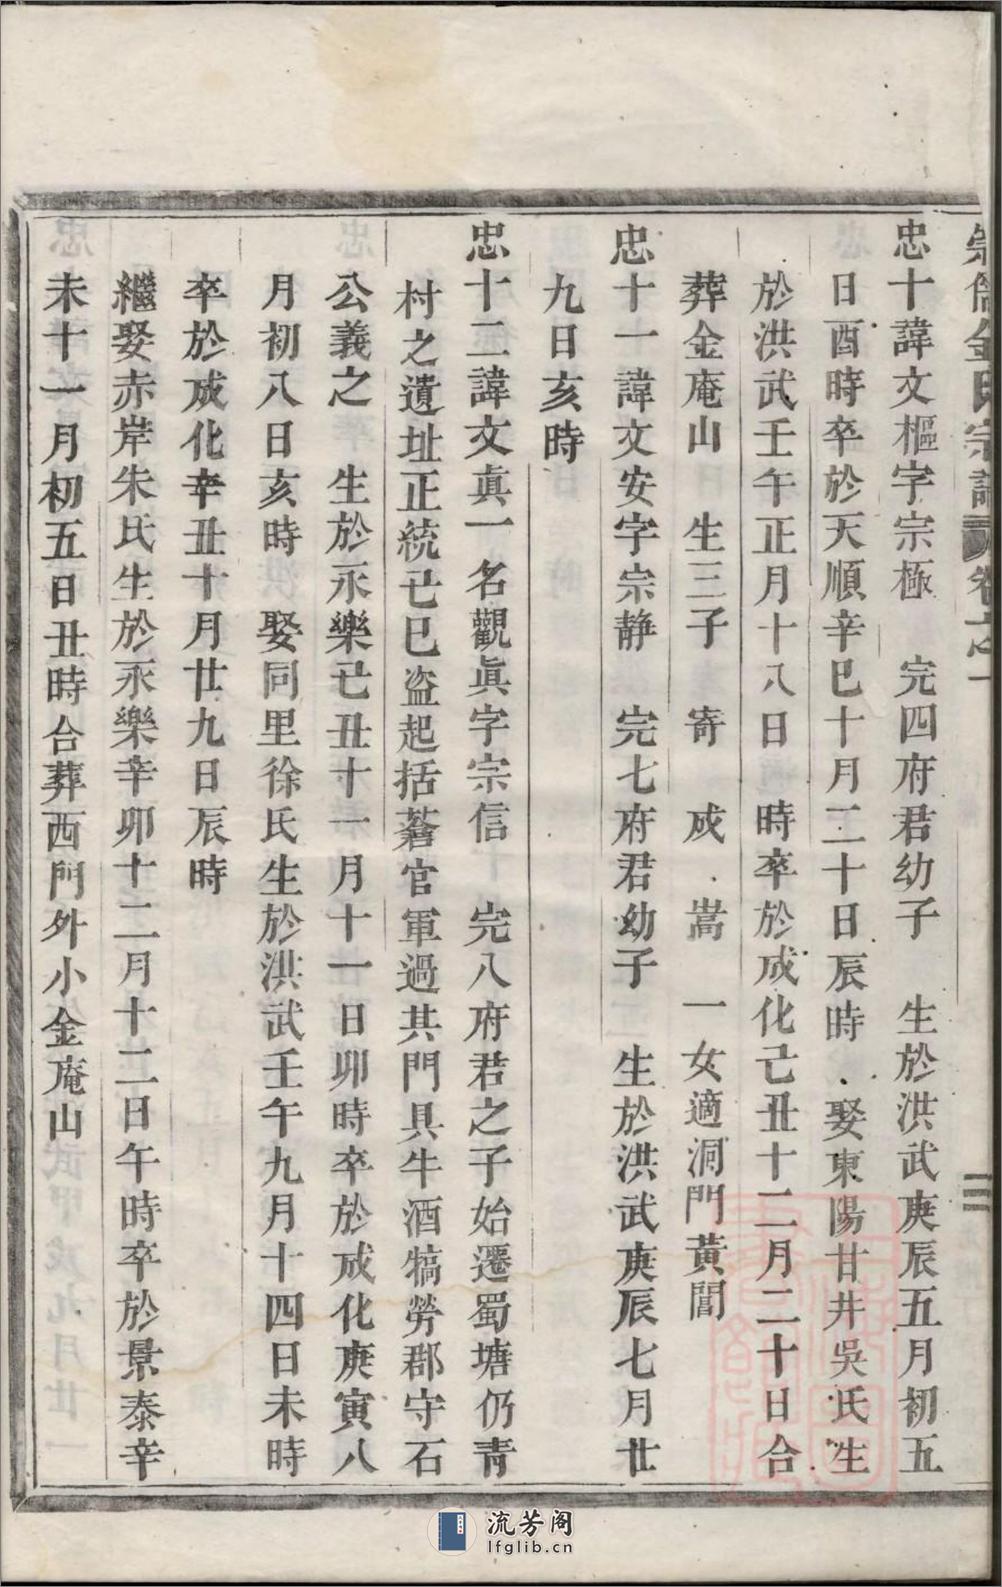 金氏宗譜 卷之一
三
忠十諱文樞字宗極 完四府君幼子 生於洪武庚辰五月初五
日酉時卒於天順辛巳十月二十日辰時 娶東陽甘井吳氏生
於洪武壬午正月十八日 時卒於成化己丑十二月二十日合
葬金庵山 生三子 寄 成 嵩 一女適洞門黃誾
忠十一諱文安字宗靜 完七府君幼子 生於洪武庚辰七月廿
九日亥時
忠十二諱文眞一名觀眞字宗信 完八府君之子始遷蜀塘仍靑
村之遺址正統己巳盗起括蒼官軍過其門具牛酒犒勞郡守石
公義之 生於永樂己丑十一月十一日卯時卒於成化庚寅八
月初八日亥時 娶同里徐氏生於洪武壬午九月十四日未時
卒於成化辛丑十月廿九日辰時
繼娶赤岸朱氏生於永樂辛卯十二月十二日午時卒於景泰辛
未十一月初五日丑時合葬西門外小金庵山
流芳阁
lfglib.cn